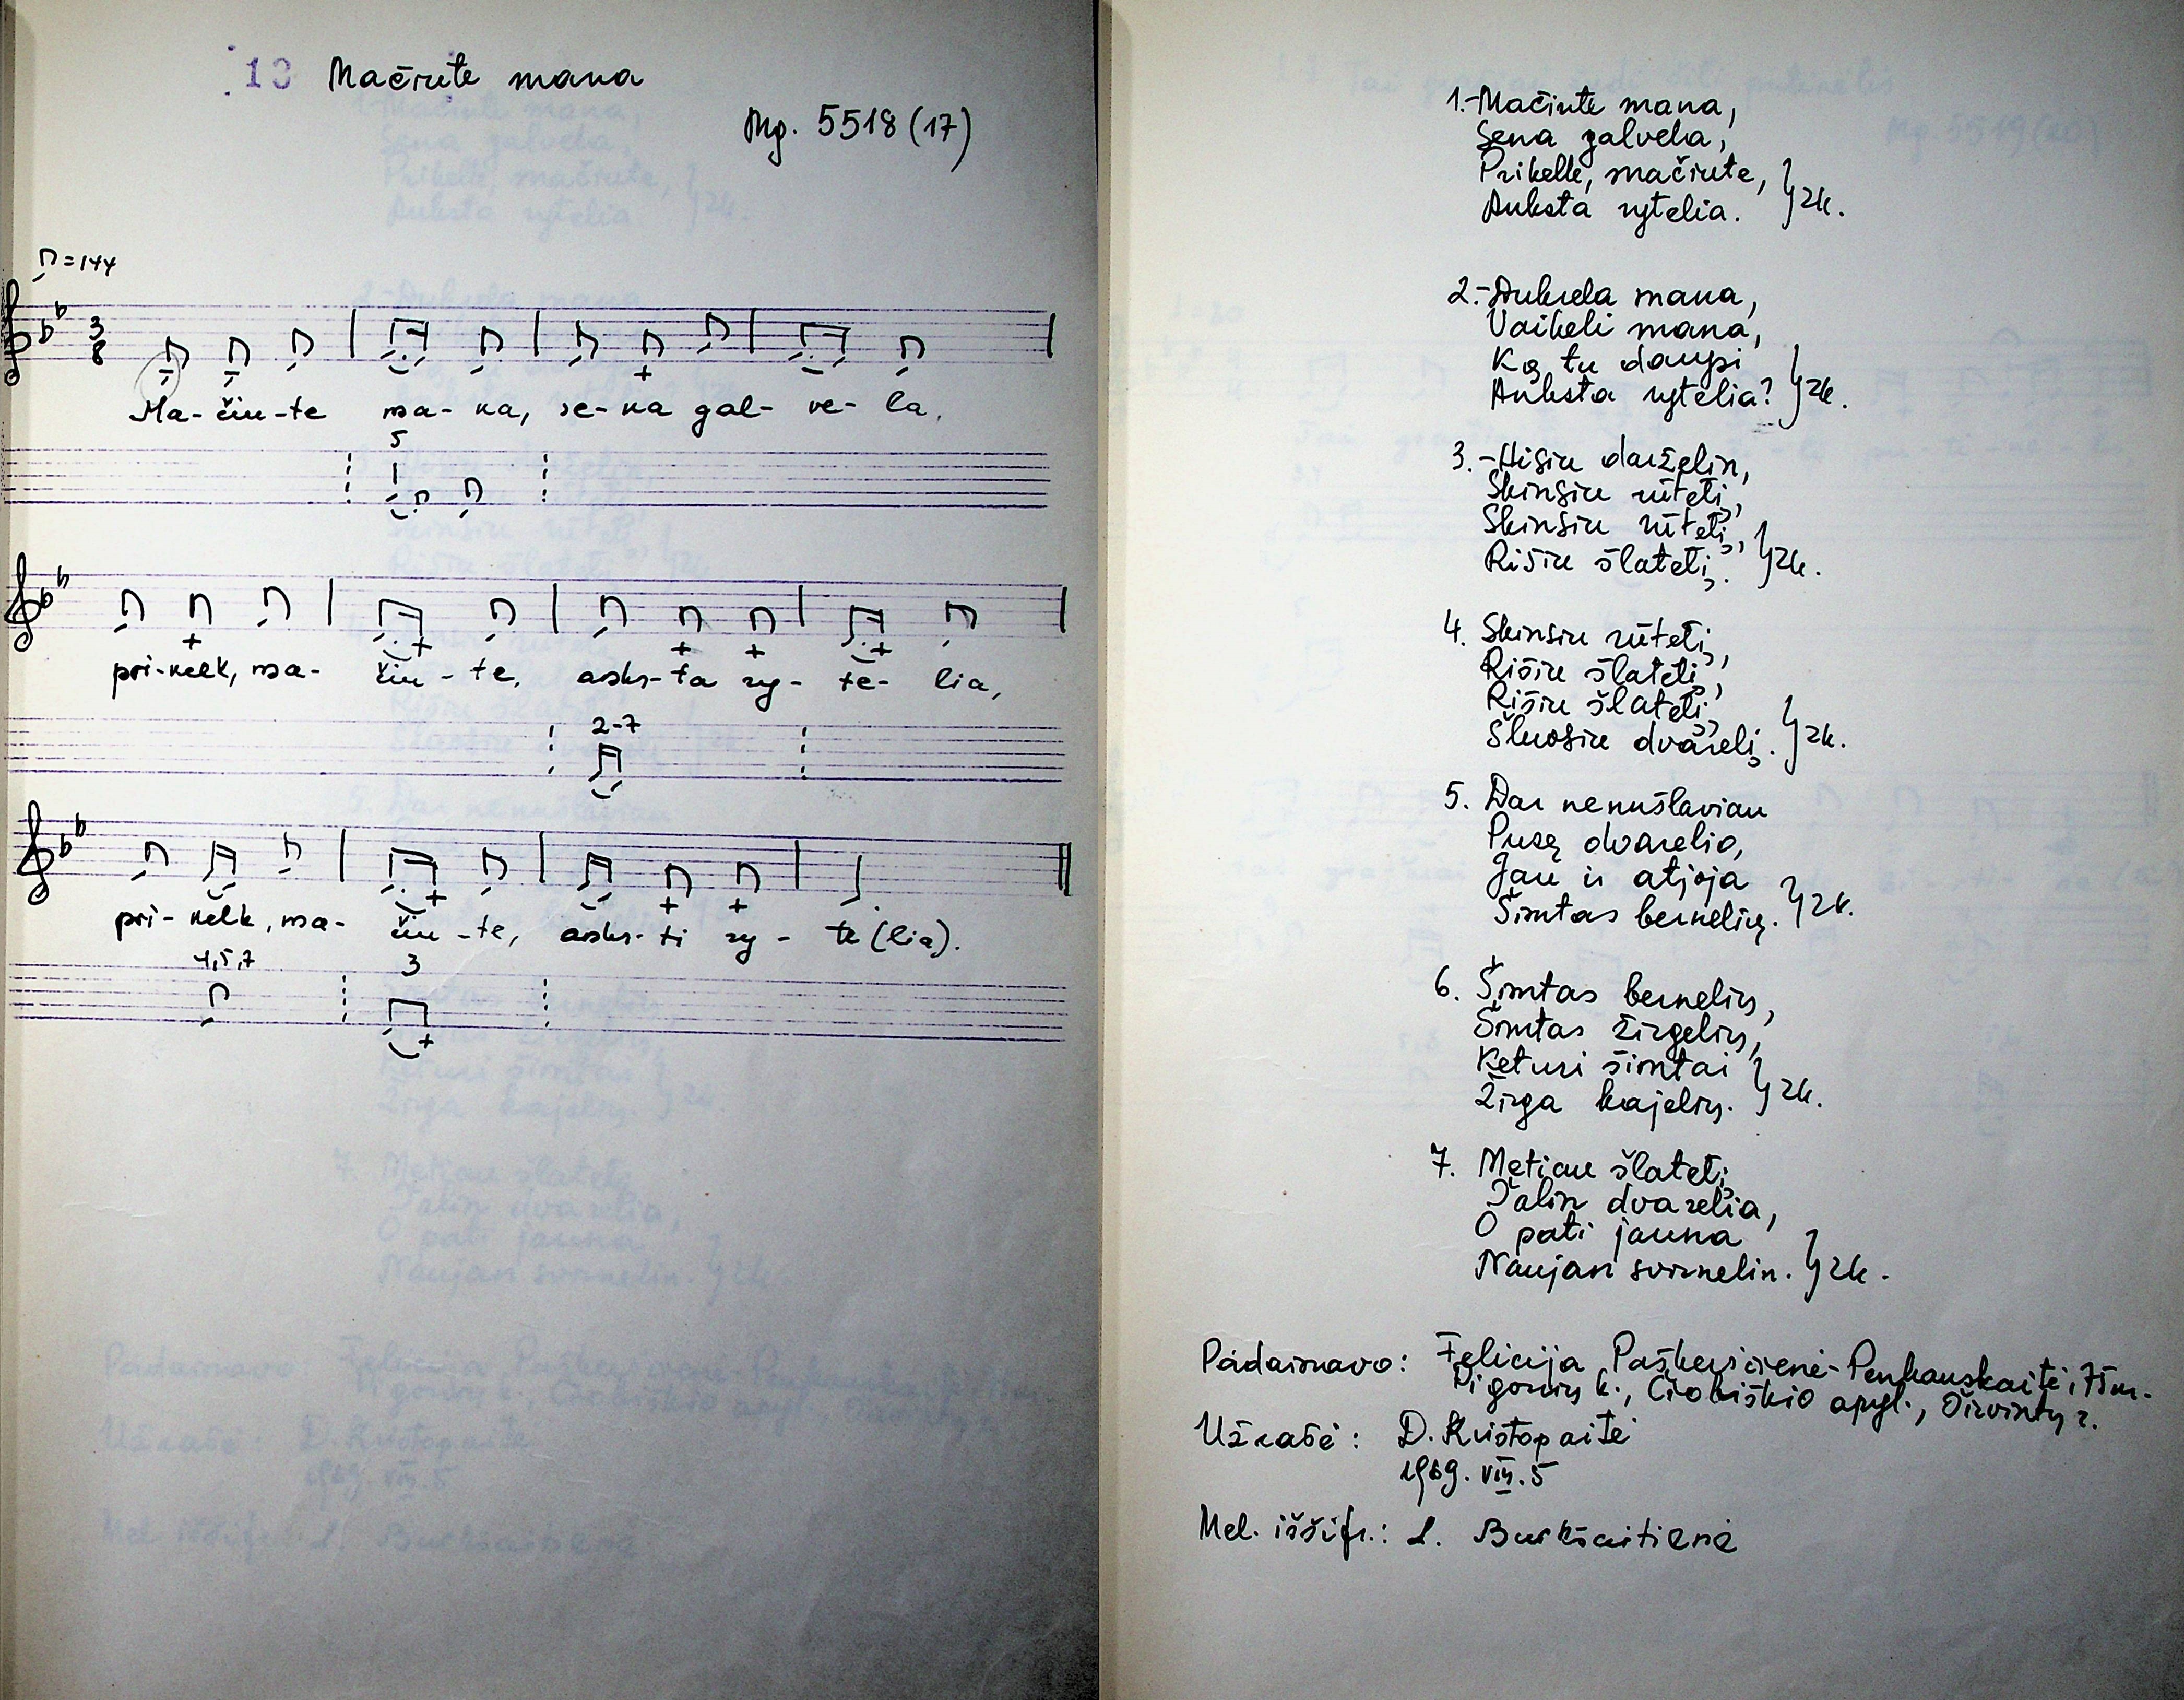 13 Mačiute mana
Mg. 5518 (17)
♪=144
3
8
Ma- čiu-te ma- na, se-na gal- ve- la,
5
pri-kelk, ma- čiu-te, anks-ta ry- te- lia,
2-7
pri- kelk, ma- čiu-te, anks-ti ry- te(lia).
4,5,7 3
1.-Mačiute mana,
Sena galvela,
Prikelk, mačiute,
Anksta rytelia. }2k.
2.-Dukrela mana,
Vaikeli mana,
Ką tu daugsi
Anksta rytelia? }2k.
3.-Aisiu darželin,
Skinsiu rūtelį,
Skinsiu rūtelį,
Rišiu šlatelį. }2k.
4. Skinsiu rūtelį,
Rišiu šlatelį,
Rišiu šlatelį,
Šluosiu dvarelį. }2k.
5. Dar nenušlaviau
Pusę dvarelio,
Jau ir atjoja
Šimtas bernelių. }2k.
6. Šimtas bernelių,
Šimtas žirgelių,
Keturi šimtai
Žirga kajelių. }2k.
7. Mečiau šlatelį
Šalin dvarelia,
O pati jauna
Naujan svirnelin. }2k.
Padainavo: Felicija Paškevičienė-Penkauskaitė, 75 m.
Pigonių k., Čiobiškio apyl., Širvintų r.
Užrašė: D. Kristopaitė
1969. VIII. 5
Mel. iššifr.: L. Burkšaitienė